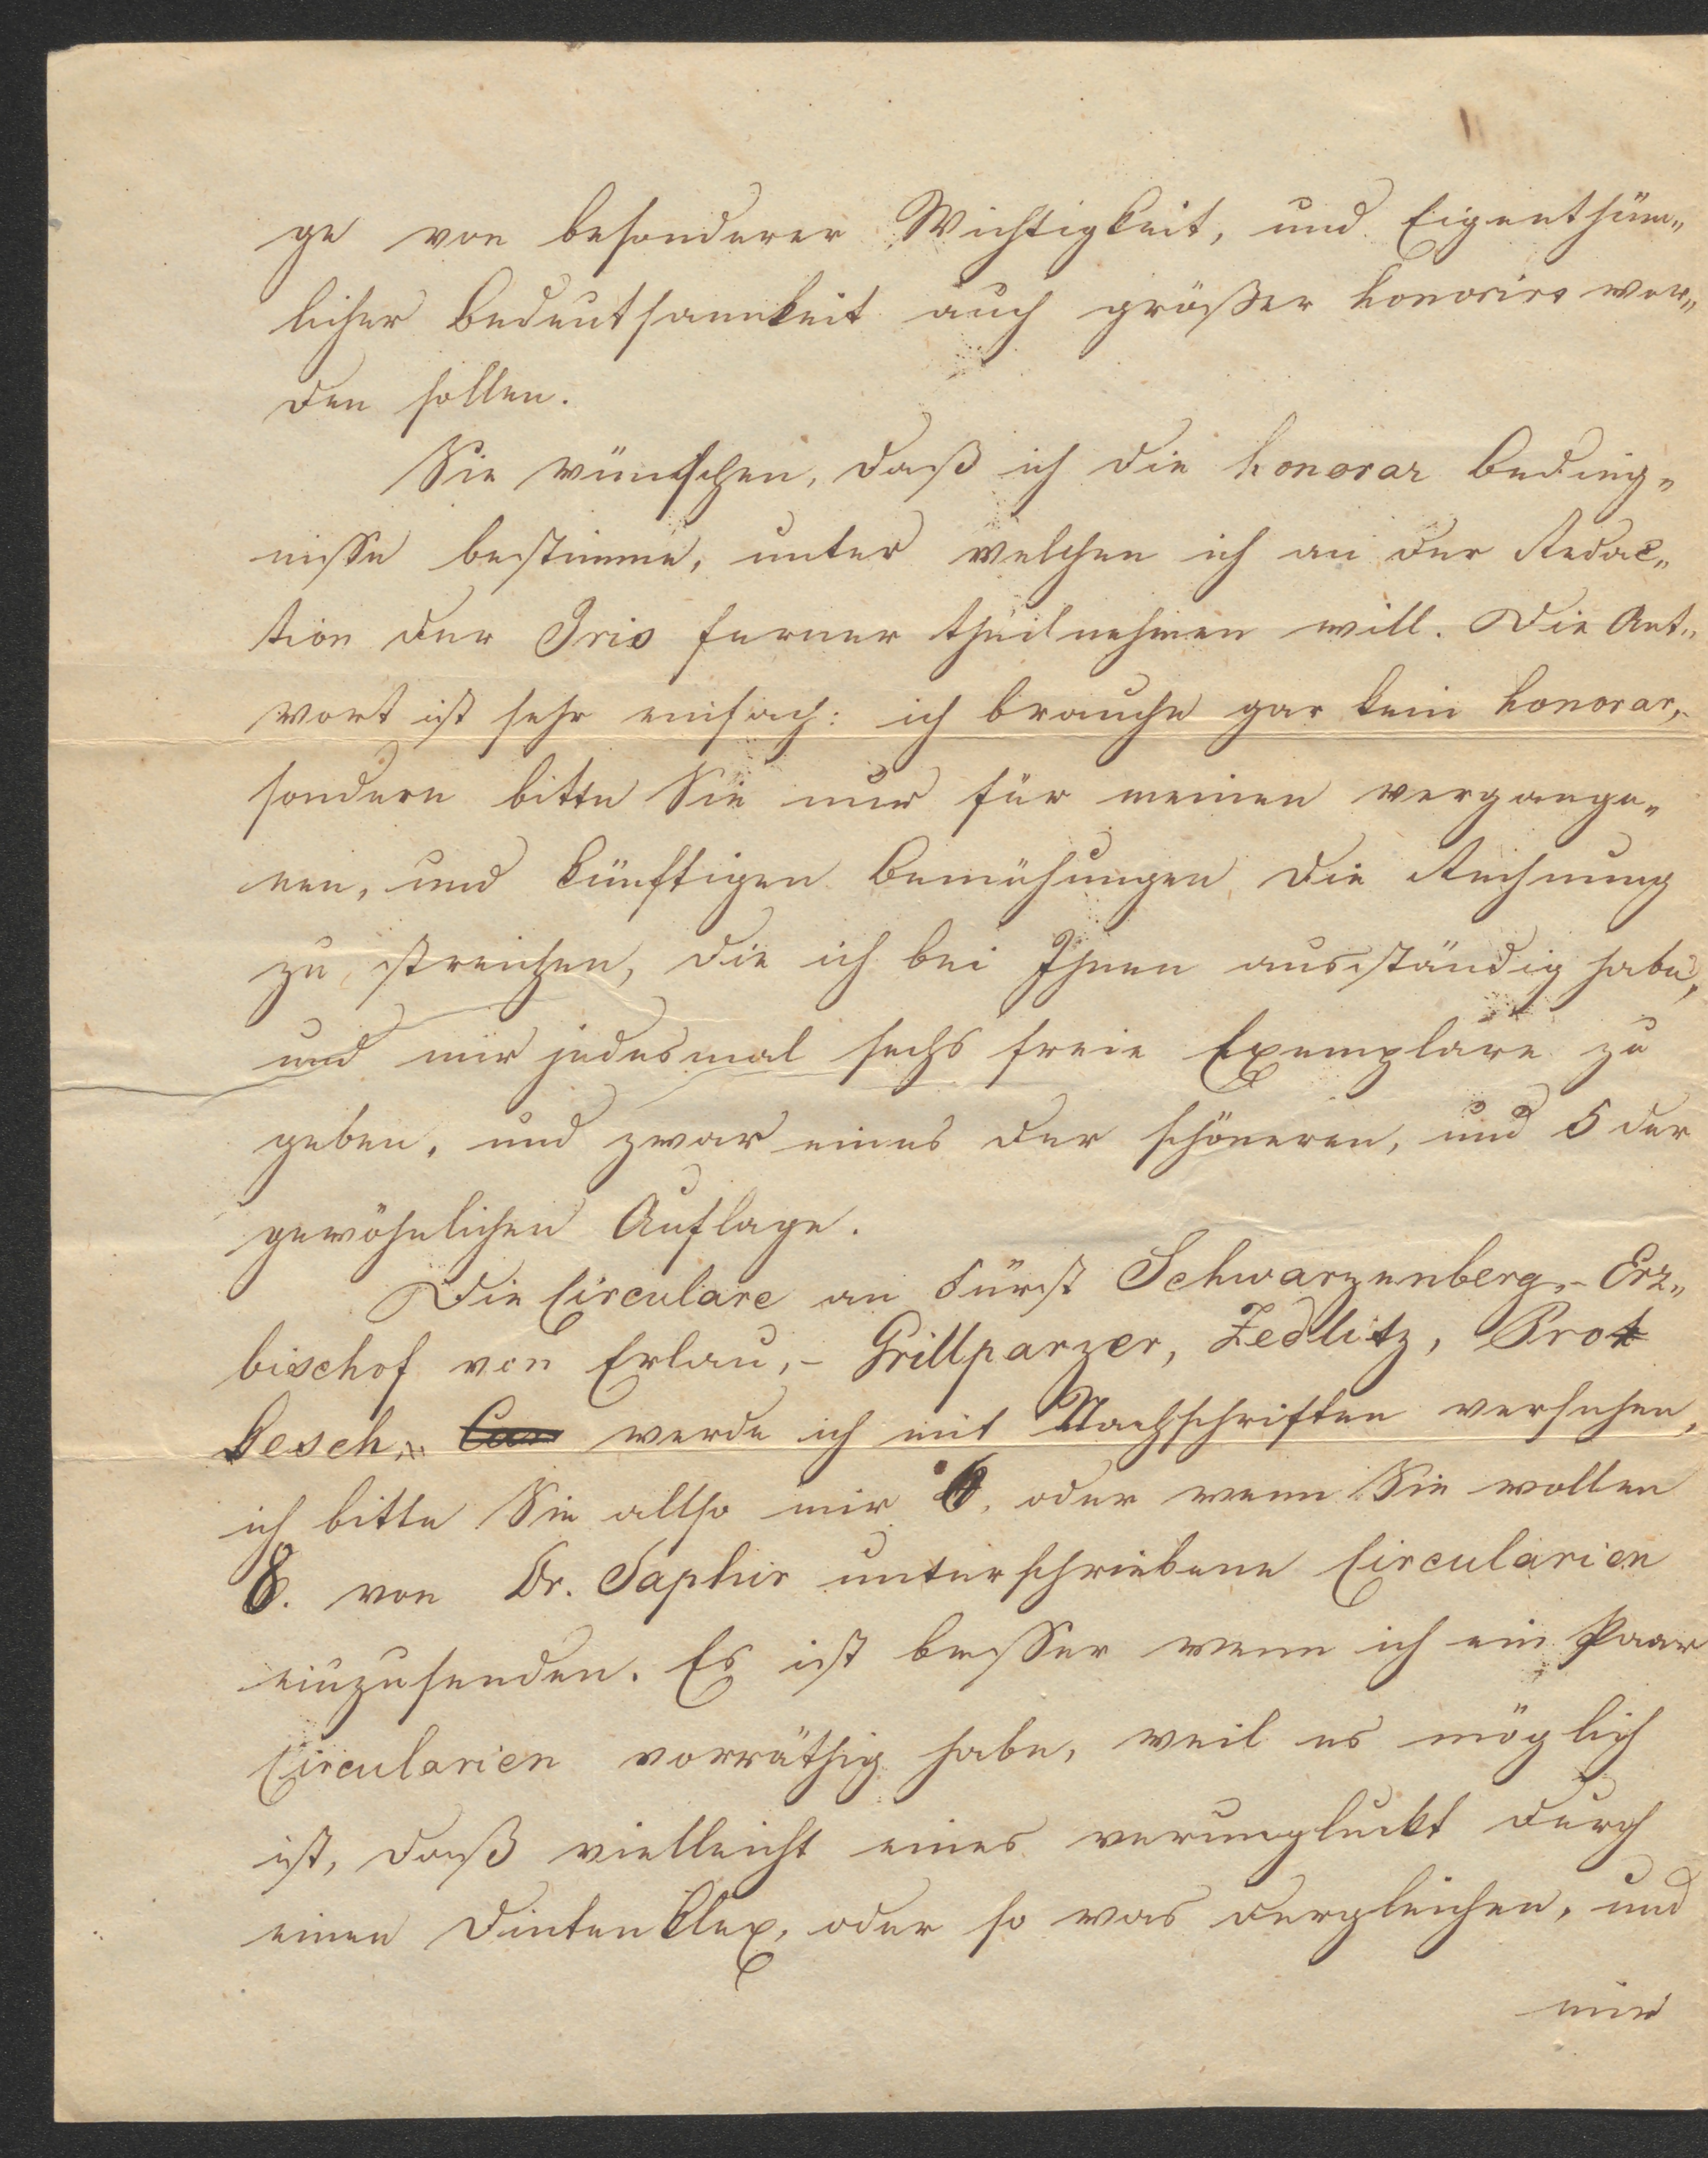 ge von besonderer Wichtigkeit, und Eigenthüm„
licher Bedeutsamkeit auch größer honorirt wer„
den sollen.
Sie wünschen, daß ich die honorar Beding„
nisse bestimme, unter welchen ich an der Redac„
tion der Iris ferner theilnehmen will. Die Ant„
wort ist sehr einfach: ich brauche gar kein honorar,-
sondern bitte Sie nur für meinen vergange„
nen, und künftigen Bemühungen die Rechnung
zu streichen, die ich bei Ihnen ausständig habe,
und mir jedesmal sechs freie Exemplare zu
geben, und zwar eines der schöneren, und 5 der
gewöhnlichen Auflage.
Die Circulare an Fürst Schwarzenberg,- Erz„
bischof von Erlau,- Grillparzer, Zedlitz, Prok
besch, werde ich mit Nachschriften versehen,
ich bitte Sie allso mir 6. oder wenn Sie wollen
8. von Dr. Saphir unterschriebene Circularien
einzusenden. Es ist besser wenn ich ein Paar
Circularien vorräthig habe, weil es möglich
ist, daß vielleicht eines verungluckt durch
einen Dintenklex, oder so was dergleichen, und
mir